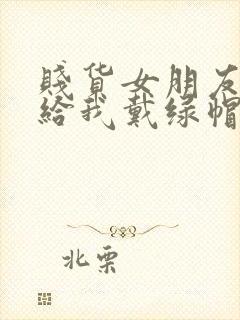 賤货女朋友
給我戴绿帽
北栗